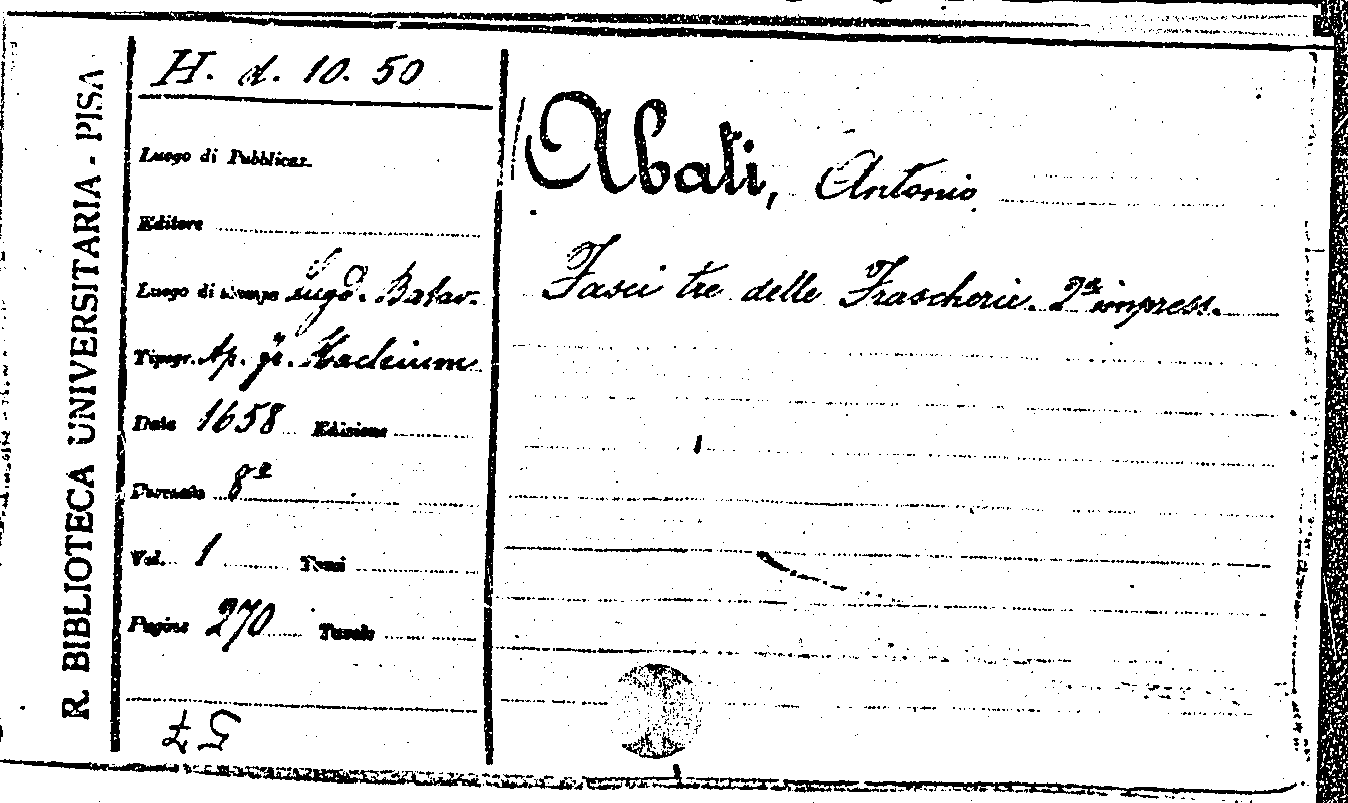 R. BIBLIOTECA UNIVERSITARIA - PISA
H. d. 10. 50
Luogo di Pubblicaz.
Editore
Luogo di stampa Lugd. Batav.
Tipogr. Ap. Jo.
Data 1658 Edizione
Formato 8º
Vol. 1 Tomi
Pagine 270 Tavole
Abati, Antonio
Fasci tre delle Frascherie. 2ª impress.